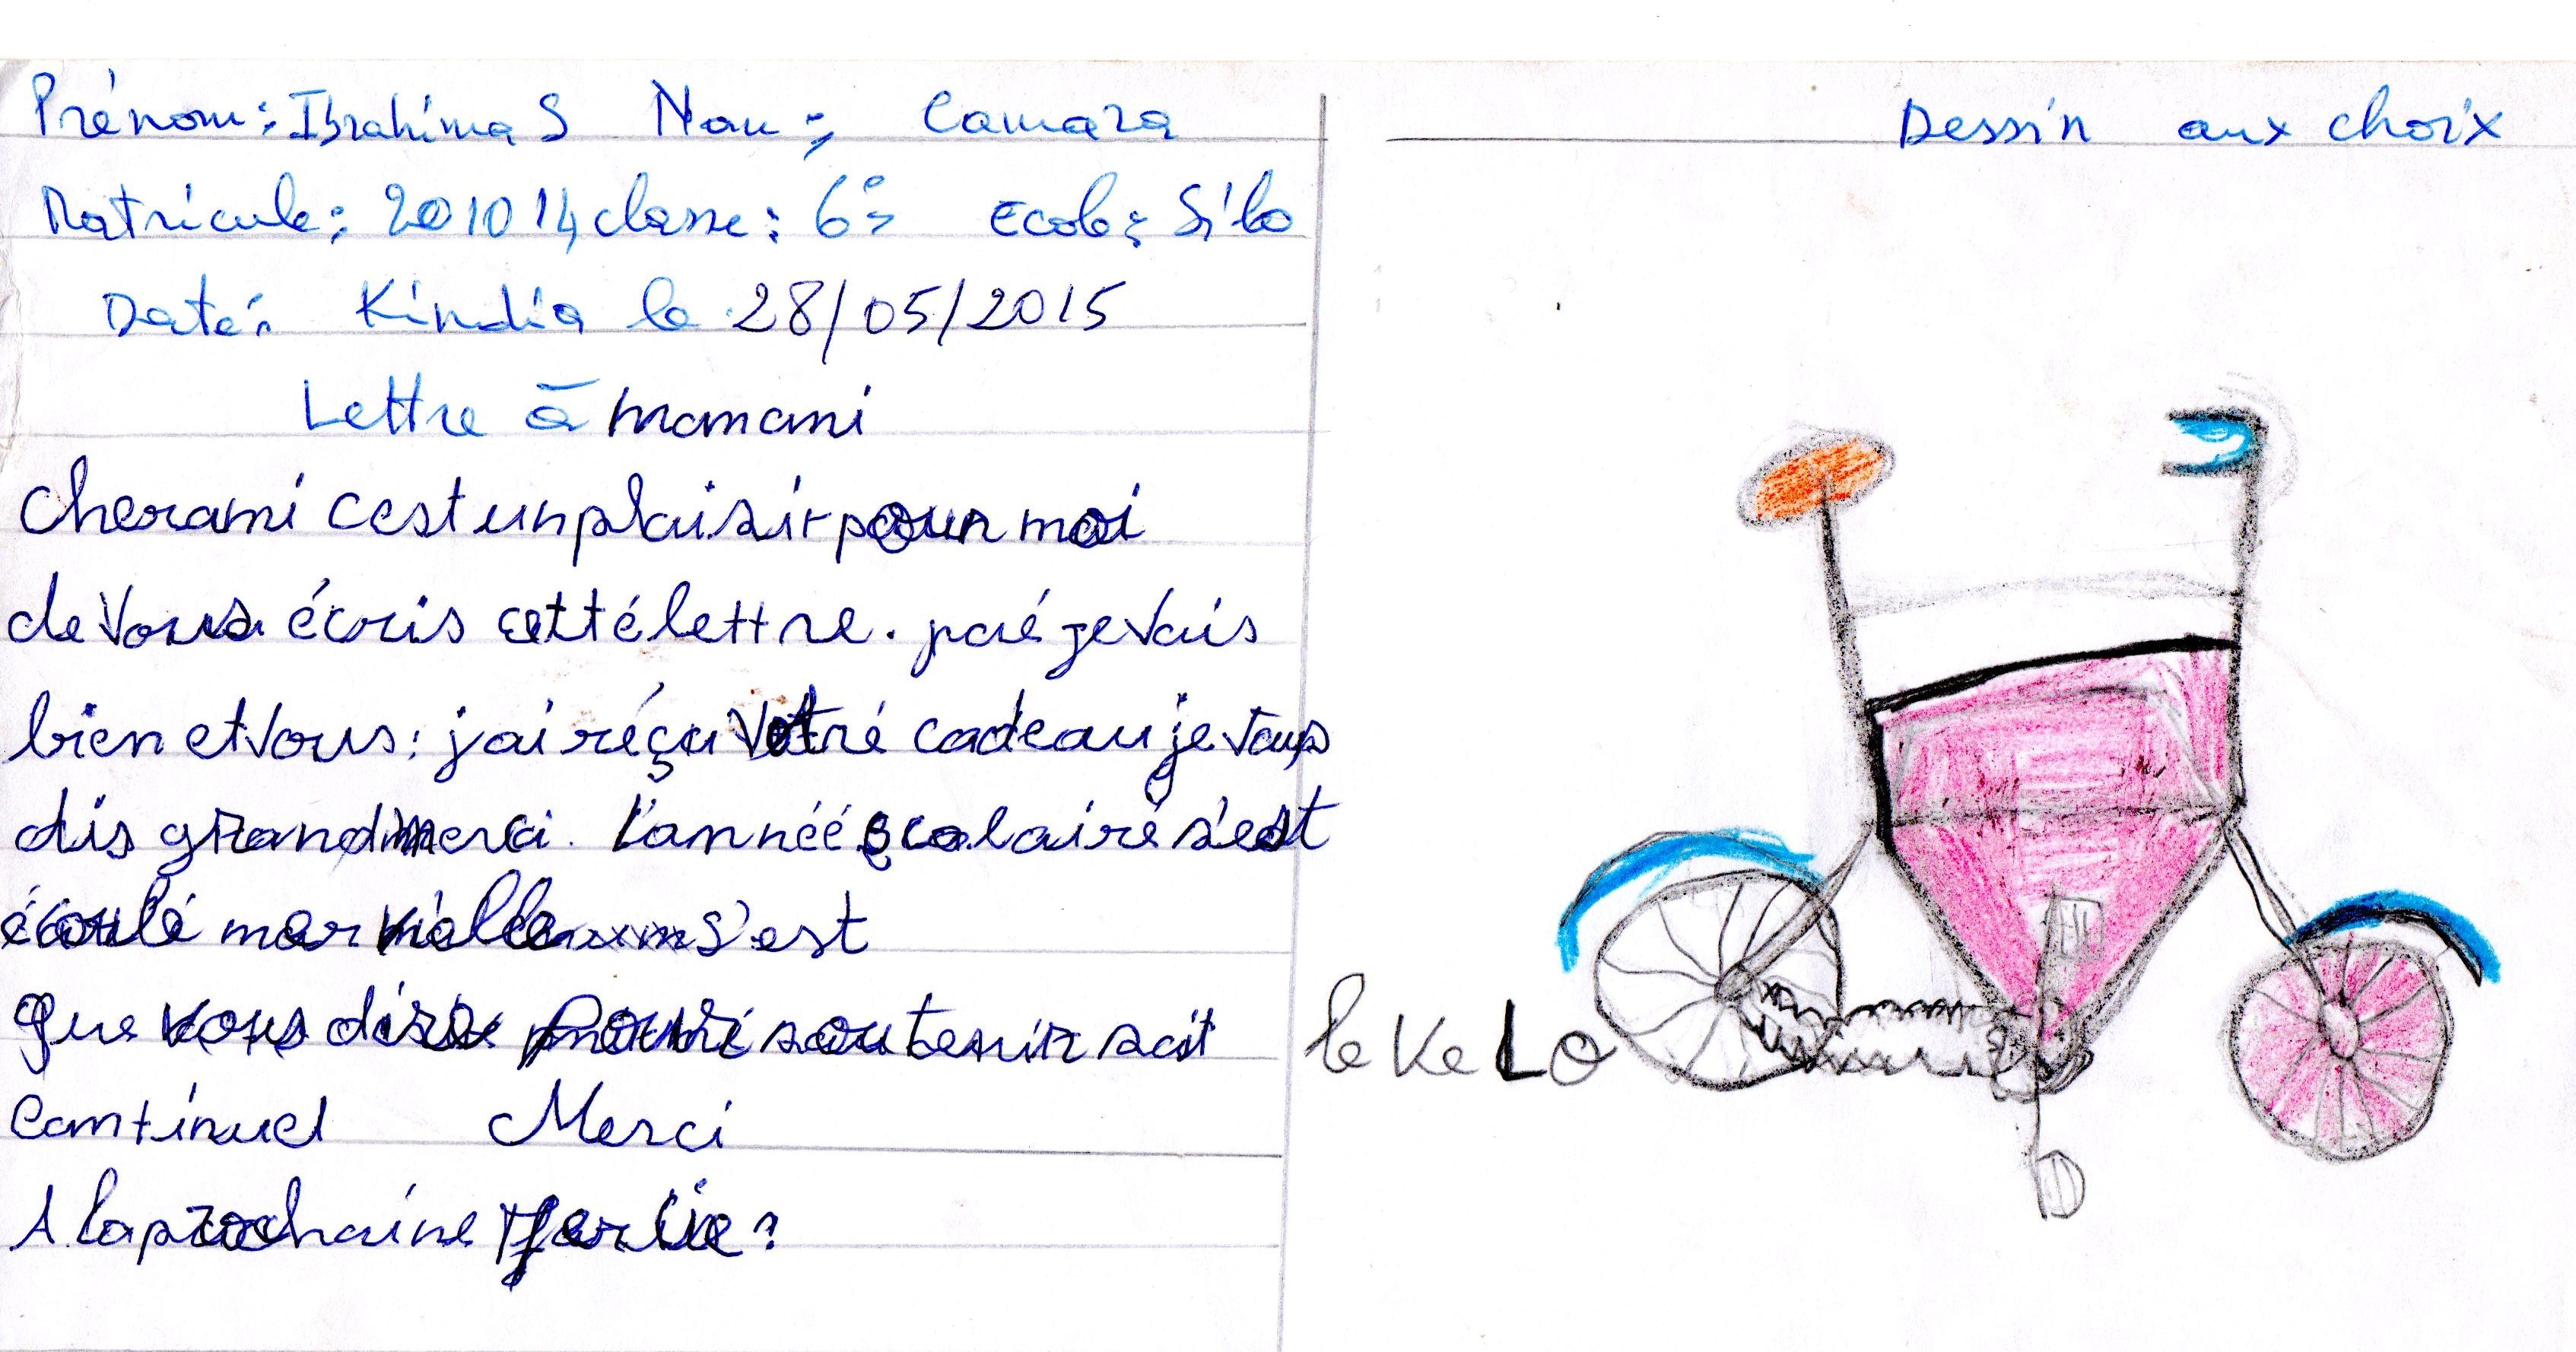 Prénom: Ibrahima S Nom: Camara
Matricule: 201014 classe: 6è Ecole: Silo
Daté: Kindia le 28/05/2015
Lettre à mon ami
cher ami c'est un plaisir pour moi
de vous écris cetté lettre. je vais
bien et vous: j'ai réçu votré cadeau je vous
dis grand merci. l'annéé scolairé s'est
écoulé
s'est
Que vous dire soutenir soit
continuel Merci
A la prochaine
Dessin aux choix
le KeLo